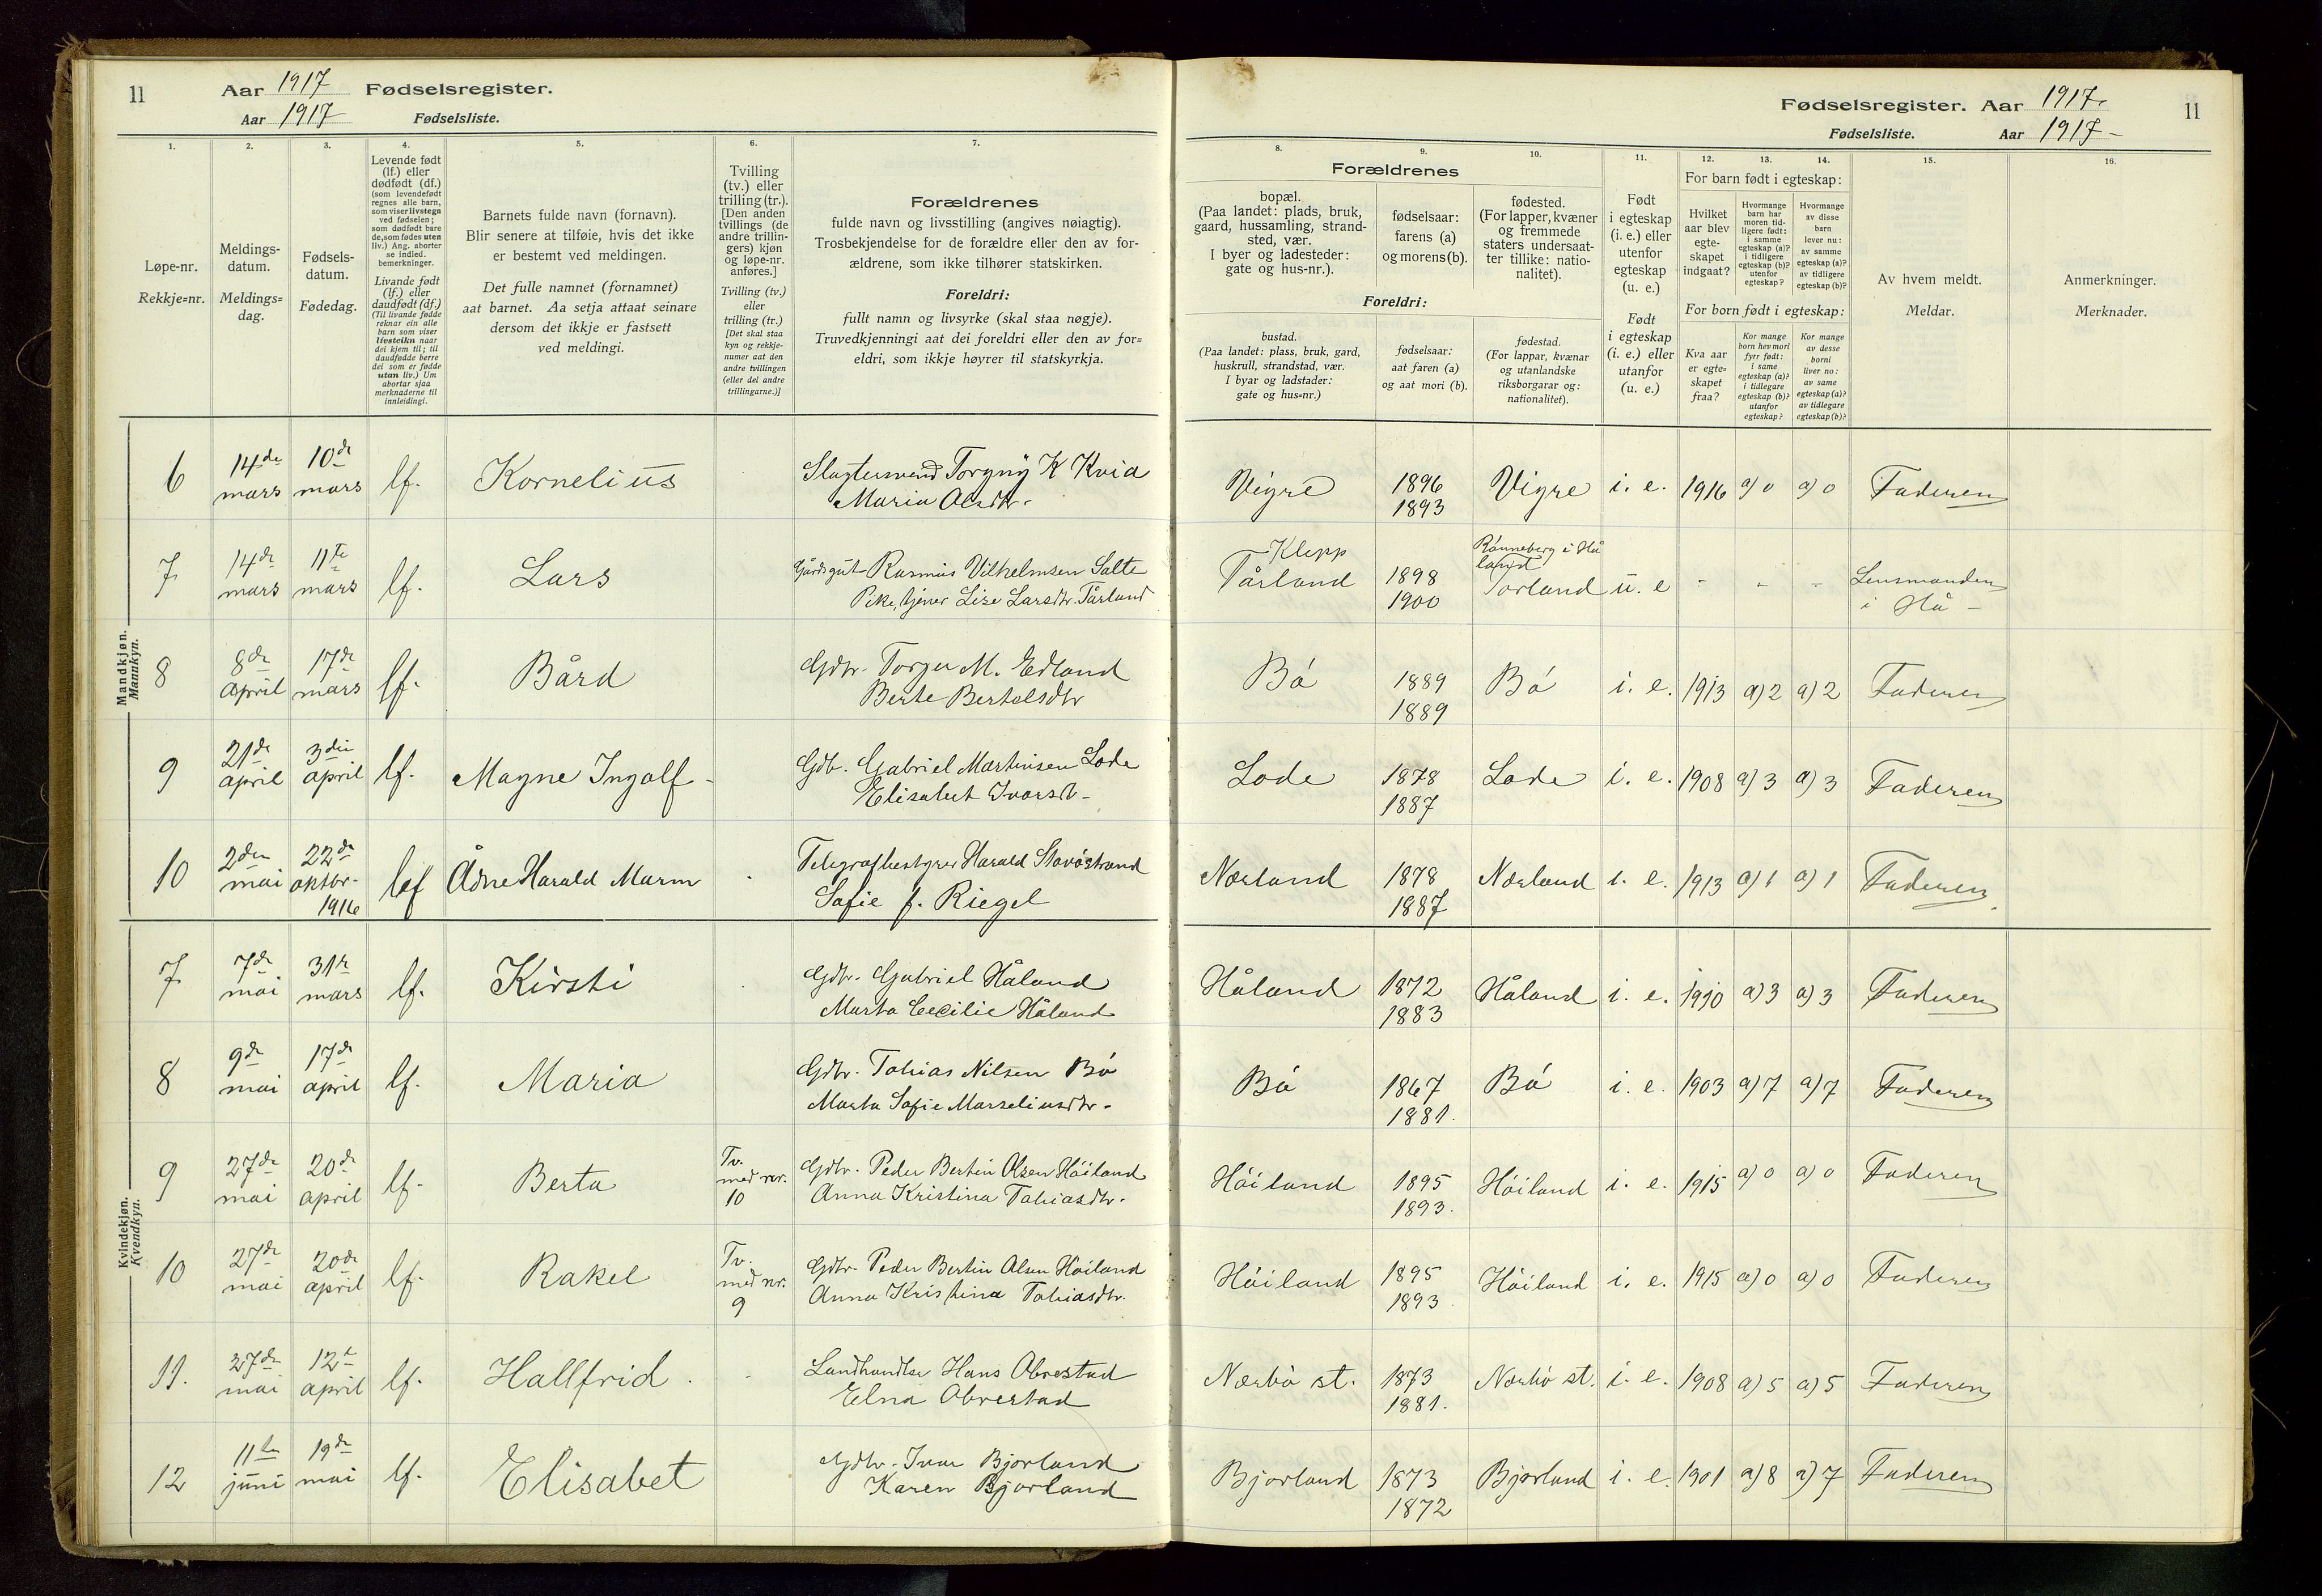 11
Aar 1917 Fødselsregister.
Aar 1917 Fødselsliste.
Fødselsregister. Aar 1917.
Fødselsliste. Aar 1917 –
11
1.
2.
3.
4.
5.
6.
7.
8.
9.
10.
11.
12.
13.
14.
15.
16.
Løpe-nr.
Rekkje=nr.
Meldings-
datum.
Meldings=
dag.
Fødsels-
datum.
Fødedag.
Levende født
(lf.) eller
dødfødt (df.)
(som levendefødt
regnes alle barn,
som viser livstegn
ved fødselen;
som dødfødt bare
de, som fødes uten
liv.) Ang. aborter
se indled.
bemerkninger.
Livande født
(lf.) eller
daudfødt (df.)
(Til livande fødde
reknar ein alle
barn som viser
livsteikn naar
dei kjem til; til
daudfødde berre
dei som er fødde
utan liv.) Um
abortar sjaa
merknaderne til
innleidingi.
Barnets fulde navn (fornavn).
Blir senere at tilføie, hvis det ikke
er bestemt ved meldingen.
Det fulle namnet (fornamnet)
aat barnet. Aa setja attaat seinare
dersom det ikkje er fastsett
ved meldingi.
Tvilling
(tv.) eller
trilling (tr.).
[Den anden
tvillings (de
andre trillin-
gers) kjøn
og løpe-nr.
anføres.]
Tvilling (tv.)
eller
trilling (tr.)
[Det skal staa
kyn og rekkje-
numer aat den
andre tvillingen
(eller dei andre
trillingarne.)]
Forældrenes
fulde navn og livsstilling (angives nøiagtig).
Trosbekjendelse for de forældre eller den av for-
ældrene, som ikke tilhører statskirken.
Foreldri:
fullt namn og livsyrke (skal staa nøgje).
Truvedkjenningi aat dei foreldri eller den av for=
eldri, som ikkje høyrer til statskyrkja.
Forældrenes
bopæl.
(Paa landet: plads, bruk,
gaard, hussamling, strand-
sted, vær.
I byer og ladesteder:
gate og hus-nr.).
fødselsaar:
farens (a)
og morens (b).
fødested.
(For lapper, kvæner
og fremmede
staters undersaat-
ter tillike: natio-
nalitet).
Foreldri:
bustad.
(Paa landet: plass, bruk, gard,
huskrull, strandstad, vær.
I byar og ladstader:
gate og hus=nr.)
fødselsaar:
aat faren (a)
og aat mori (b).
fødestad.
(For lappar, kvænar
og utanlandske
riksborgarar og:
nationalitet).
Født
i egteskap
(i. e.) eller
utenfor
egteskap
(u. e.)
Født
i egteskap
(i. e.) eller
utanfor
(u. e.)
For barn født i egteskap:
Hvilket
aar blev
egte-
skapet
indgaat?
Hvormange
barn har
moren tid-
ligere født:
i samme
egteskap (a)?
i tidligere
egteskap (b)?
utenfor
egteskap?
Hvormange
av disse
barn
lever nu:
av samme
egteskap (a)?
av tidligere
egteskap (b)?
For born født i egteskap:
Kva aar
er egte=
skapet
fraa?
Kor mange
born hev mori
fyrr født:
i same
egteskap (a)?
i tidlegare
egteskap (b)?
utanfor
egteskap?
Kor mange
av desse
borni
liver no:
av same
egteskap (a)?
av tidlegare
egteskap (b)?
Av hvem meldt.
Meldar.
Anmerkninger.
Merknader.
Mandkjøn.
Mannkyn.
6 14de mars 10de mars lf. Kornelius Torgny K Kvia
Maria
Vigre 1896 Vigre i. e. 1916 a) 0 a) 0 Faderen
1893
7 14de mars 11te mars lf. Lars Gårdsgut Rasmus Vilhelmsen Salte
Pike, tjener Lise Larsdtr. Tårland
Klepp Rønneberg i Hå
land
Tårland 1898 Torland u. e - - - Lensmanden
1900 i Hå –
8 8de april 17de mars lf. Bård Gdbr. Torger M. Edland
Berte Bertelsdtr
Bø 1889 Bø i. e. 1913 a) 2 a) 2 Faderen
1889
9 21de april 3die april lf. Magne Ingolf - Gdb. Gabriel Martinsen Lode
Elisabet Ivarsd -
Lode 1878 Lode i. e. 1908 a) 3 a) 3 Faderen
1887
10 2den mai 22de oktbr. 1916 lf Ådne Harald Marm Telegrafbestyrer Harald
Sofie f. Riegel
Nærland 1878 Nærland i. e. 1913 a) 1 a) 1 Faderen
1887
Kvindekjøn.
Kvendkyn.
7 7de mai 31te mars lf. Kirsti Gdbr. Gabriel Håland
Marta Cecilie Håland
Håland 1872 Håland i. e. 1910 a) 3 a) 3 Faderen
1883
8 9de mai 17de april lf. Maria Gdbr. Tobias Nilsen Bø
Marta Sofie Marseliusdtr.
Bø 1867 Bø i. e. 1903 a) 7 a) 7 Faderen
1881.
9 27de mai 20de april lf. Berta Tv. med nr. 10 Gdbr. Peder Bertin Olsen Høiland
Anna Kristina Tobiasdtr.
Høiland 1895 Høiland i. e. 1915 a) 0 a) 0 Faderen
1893.
10 27de mai 20de april lf. Rakel Tv. med nr. 9 Gdbr. Peder Bertin Olsen Høiland
Anna Kristina Tobiasdtr.
Høiland 1895 Høiland i. e. 1915 a) 0 a) 0 Faderen
1893
11. 27de mai 12te april lf. Hallfrid. Landhandler Hans Obrestad
Elna Obrestad
Nærbø st. 1873 Nærbø st. i. e. 1908 a) 5 a) 5 Faderen
1881.
12 11te juni 19de mai lf. Elisabet Gdbr. Ivar Bjorland
Karen Bjorland
Bjorland 1873 Bjorland i. e. 1901 a) 8 a) 7 Faderen
1872